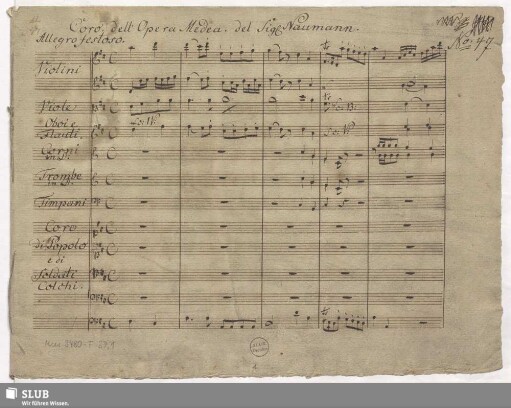 Coro dell'Opera Medea, del Sigr. Naumann.
No: 47.
Allegro festoso.
Violini
Viole
Oboi e
Flauti.
Corni
Trombe
Timpani
Coro
di Popolo
e di
Soldati
Colchi.
SLUB
1
SLUB
Wir führen Wissen.